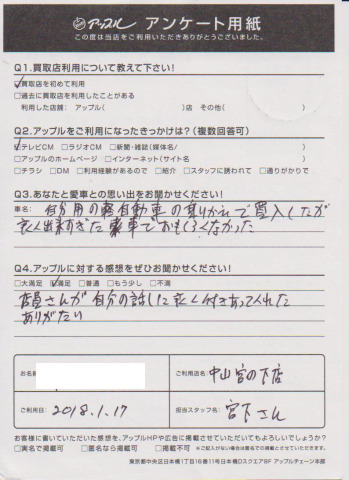 アップル アンケート用紙
この度は当店をご利用いただきありがとうございました。
Q1.買取店利用について教えて下さい!
☑買取店を初めて利用
□過去に買取店を利用したことがある
利用した店舗: アップル( )店 その他( )
Q2.アップルをご利用になったきっかけは?(複数回答可)
☑テレビCM □ラジオCM □新聞・雑誌(媒体名/ )
□アップルのホームページ □インターネット(サイト名 )
□チラシ □DM □利用経験があるので □紹介 □スタッフに誘われて □通りがかりで
Q3.あなたと愛車との思い出をお聞かせください!
車名: 自分用の軽自動車の
で買入したが
出来すぎた車でおもしろくなかった
Q4.アップルに対する感想をぜひお聞かせください!
□大満足 ☑満足 □普通 □もう少し □不満
店員さんが自分の話しに良く付きあってくれた
ありがたい
お名前
ご利用店名: 中山宮の下店
ご利用日: 2018.1.17
担当スタッフ名: 宮下さん
お客様に書いていただいた感想を、アップルHPや広告に掲載させていただいてもよろしいでしょうか?
□実名で掲載可 □匿名なら掲載可 □掲載不可 ※ご記入がない場合は匿名での掲載とさせていただきます。
東京都中央区日本橋1丁目16番11号日本橋Dスクエア8F アップルチェーン本部